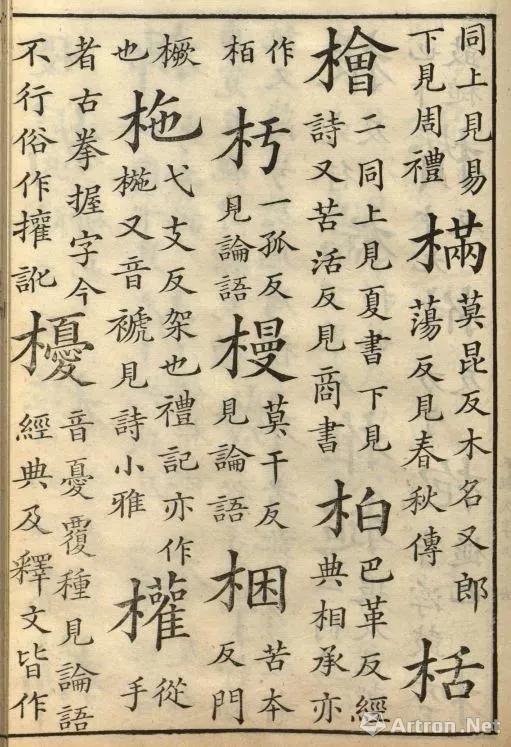 同上見易
下見周禮
樠
莫昆反木名又郎
蕩反見春秋傳
栝
檜
二同上見夏書下見
詩又苦活反見商書
柏
巴革反經
典相承亦
作
栢
杇
一孤反
見論語
槾
莫干反
見論語
梱
苦本
反門
橛
也
柂
弋支反架也禮記亦作
椸又音褫見詩小雅
權
從
手
者古拳握字今
不行俗作㩲訛
櫌
音憂覆種見論語
經典及釋文皆作
Artron.Net